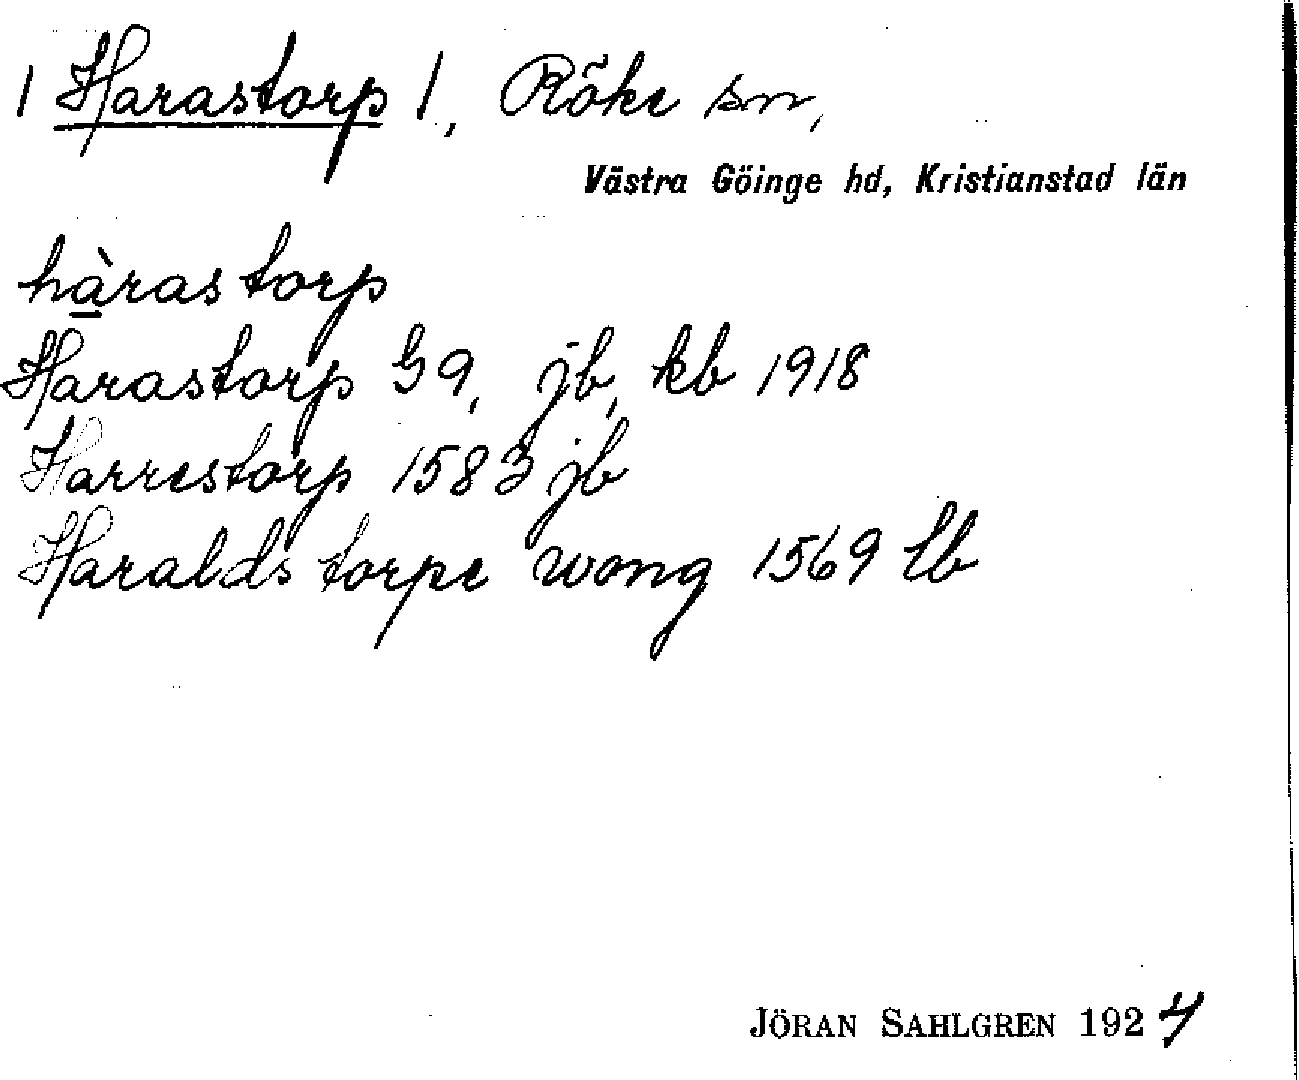 / Harastorp /, Röke sn,
Västra Göinge hd, Kristianstad län
hàrastorp
Harastorp G 9, jb, kb 1918
Harrestorp 1583 jb
Haraldstorpe wong 1569 lb
JÖRAN SAHLGREN 1924